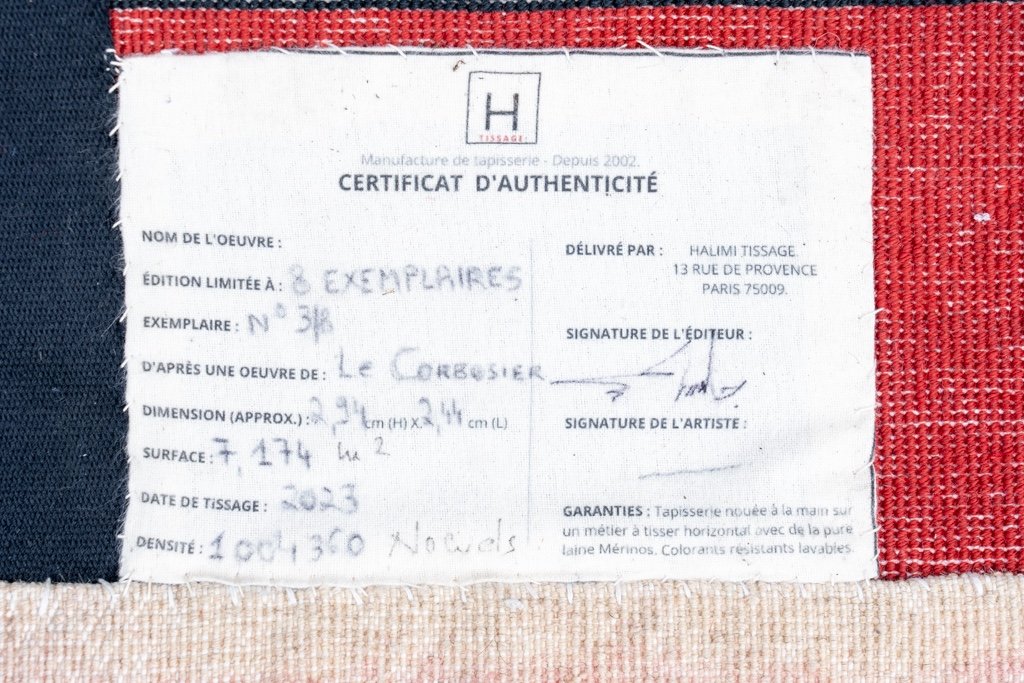 H
TISSAGE
Manufacture de tapisserie - Depuis 2002.
CERTIFICAT D'AUTHENTICITÉ
NOM DE L'OEUVRE :
ÉDITION LIMITÉE À : 8 EXEMPLAIRES
EXEMPLAIRE : N° 3/8
D'APRÈS UNE OEUVRE DE : Le CORBUSIER
DIMENSION (APPROX.) : 2,94 cm (H) X 2,44 cm (L)
SURFACE : 7,174 m²
DATE DE TISSAGE : 2023
DENSITÉ : 1004,360 Noeuds
DÉLIVRÉ PAR : HALIMI TISSAGE.
13 RUE DE PROVENCE
PARIS 75009.
SIGNATURE DE L'ÉDITEUR :
SIGNATURE DE L'ARTISTE :
GARANTIES : Tapisserie nouée à la main sur
un métier à tisser horizontal avec de la pure
laine Mérinos. Colorants résistants lavables.